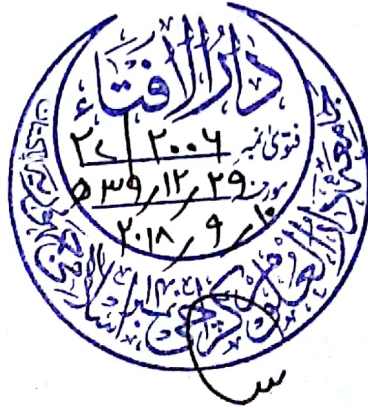 دارُ الافتاء
فتویٰ نمبر ۲۰۰۶ / ۲۷
مورخہ ۲۹ / ۱۲ / ۳۹ھ
۱۰ / ۹ / ۲۰۱۸
جامعہ دارالعلوم کراچی